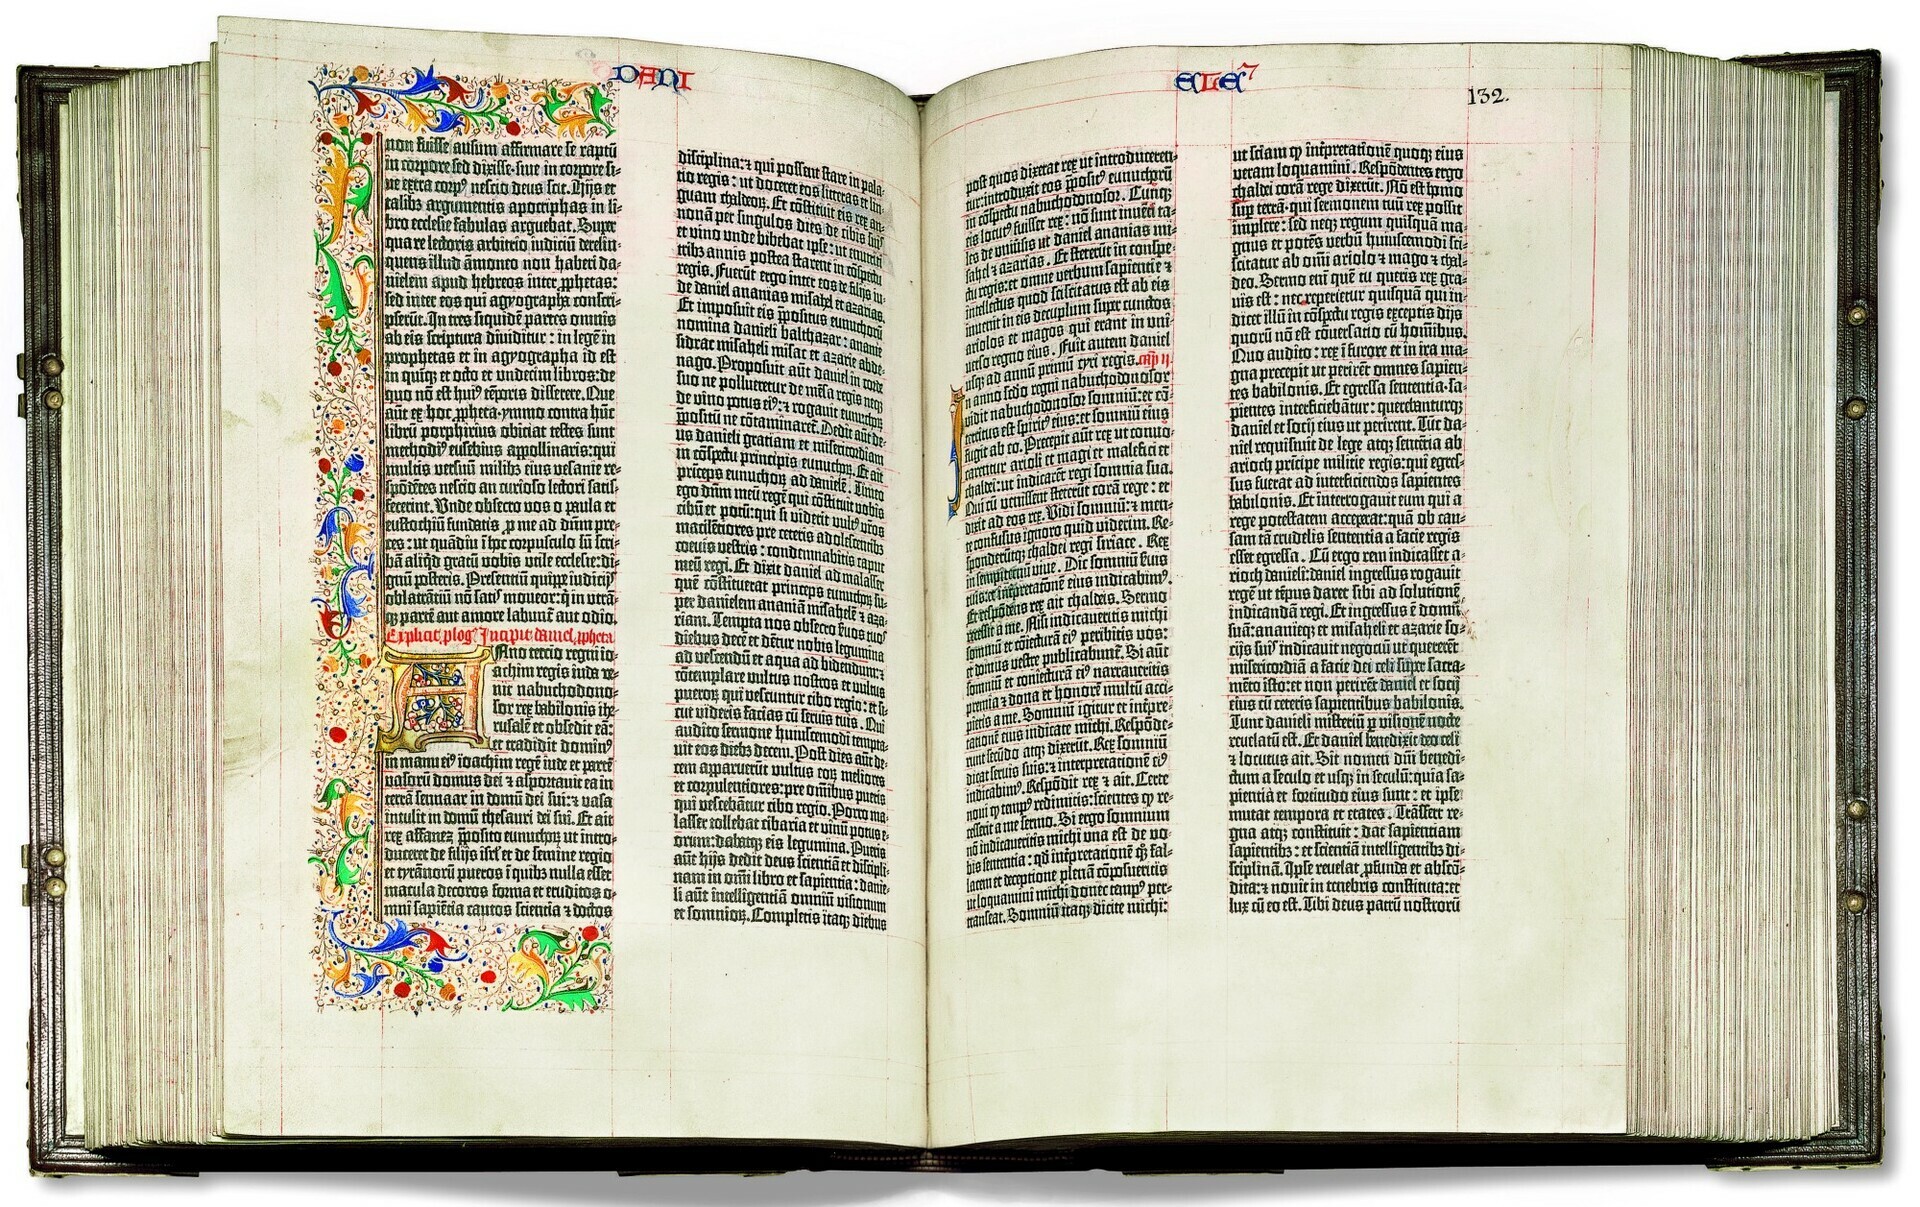 DANI
non fuisse ausum affirmare se raptū
in corpore sed dixisse·sive in corpore si-
ve extra corpꝰ nescio deus scit. Hijs et
talibꝫ argumentis apocriphas in li-
bro ecclesie fabulas arguebat. Super
qua re lectoris arbitrio iudiciū derelin-
quens illud āmoneo non haberi da-
nielem apud hebreos inter ꝓphetas:
sed inter eos qui agyographa conscri-
pserūt. In tres siquidē partes omnis
ab eis scriptura dividitur : in legē in
prophetas et in agyographa id est
in quinqꝫ et octo et undecim libros: de
quo nō est huiꝰ tēporis disserere. Que
aūt ex hoc ꝓpheta·ymmo contra hūc
librū porphirius obiciat testes sunt
methodiꝰ eusebius appollinaris: qui
multis versuū milibꝫ eius vesanie re-
spōdētes nescio an curioso lectori satis-
fecerint. Unde obsecro vos o paula et
eustochiū fundatis ꝓ me ad dūm pre-
ces : ut quādiu ī hoc corpusculo sū scri-
bā aliqd gratū vobis utile ecclesie: di-
gnū posteris. Presentiū quippe iudicijs
oblatrātiū nō satis moveor: q in utrā-
qꝫ partē aut amore labunt aut odio.
Explicit ꝓlogꝰ Incipit daniel ꝓpheta
Anno tercio regni io-
achim regis iuda ve-
nit nabuchodono-
sor rex babilonis ihe-
rusalē et obsedit eā:
et tradidit dominꝰ
in manu eiꝰ ioachim regē iude et partē
vasorū domus dei ⁊ asportavit ea in
terrā sennaar in domū dei sui: ⁊ vasa
intulit in domū thesauri dei sui. Et ait
rex asfanez ꝓposito eunuchoꝝ ut intro-
duceret de filijs isrl et de semine regio
et tyrānorū pueros ī quibꝫ nulla esset
macula decoros forma et eruditos o-
mni sapiētia cautos sciencia ⁊ doctos
disciplina: ⁊ qui possent stare in pala-
tio regis : ut doceret eos litteras et lin-
guam chaldeoꝝ. Et cōstituit eis rex an-
nonā per singulos dies de cibis suis
et vino unde bibebat ipse : ut enutriti
tribꝫ annis postea starent in cōspectu
regis. Fuerūt ergo inter eos de filijs iu-
de daniel ananias misahel et azarias.
Et imposuit eis ꝓpositus eunuchorū
nomina danieli balthazar : ananie
sidrac misaheli misac et azarie abde-
nago. Proposuit aūt daniel in corde
suo ne pollueretur de mēsa regis neqꝫ
de vino potus eiꝰ: ⁊ rogavit eunuchoꝝ
ꝓpositū ne cōtaminaret. Dedit aūt de-
us danieli gratiam et misericordiam
in cōspectu principis eunuchoꝝ. Et ait
princeps eunuchoꝝ ad daniele. Timeo
ego dūm meū regē qui cōstituit vobis
cibū et potū: qui si viderit vultꝰ vrōs
macilētiores pre ceteris adolescentibꝫ
coevis vestris : condemnabitis caput
meū regi. Et dixit daniel ad malassar
quē cōstituerat princeps eunuchoꝝ su-
per danielem ananiā misahelē ⁊ aza-
riam. Tempta nos obsecro ẜvos tuos
diebus decē et dētur nobis legumina
ad vescendū et aqua ad bibendum: ⁊
cōtemplare vultus nostros et vultus
pueroꝝ qui vescuntur cibo regio : et si-
cut videris facias cū servis tuis. Qui
audito sermone huiuscemodi tempta-
vit eos diebꝫ decem. Post dies aūt de-
cem apparuerūt vultus eoꝝ meliores
et corpulentiores: pre omībus pueris
qui vescebātur cibo regio. Porro ma-
lassar tollebat cibaria et vinū potus e-
orum: dabatqꝫ eis legumina. Pueris
aūt hijs dedit deus scientiā et discipli-
nam in omī libro et sapientia : danie-
li aūt intelligentiā omniū visionum
et somnioꝝ. Completis itaqꝫ diebus
ELEꝰ
132.
post quos dixerat rex ut introduceren-
tur: introduxit eos ꝓpositꝰ eunuchorū
in cōspectu nabuchodonosor. Cumqꝫ
eis locutꝰ fuisset rex : nō sunt inventi ta-
les de universis ut daniel ananias mi-
sahel ⁊ azarias. Et steterūt in conspe-
ctu regis: et omne verbum sapientie ⁊
intellectus quod sciscitatus est ab eis
invenit in eis decuplum supra cunctos
ariolos et magos qui erant in uni-
verso regno eius. Fuit autem daniel
usqꝫ ad annū primū cyri regis. cap̄ II
In anno secūdo regni nabuchodonosor
vidit nabuchodonosor somniū: et cō-
territus est spiritꝰ eius: et somniū eius
fugit ab eo. Precepit aūt rex ut convo-
carentur arioli et magi et malefici et
chaldei: ut indicarēt regi somnia sua.
Qui cū venissent steterūt corā rege : et
dixit ad eos rex. Vidi somniū: ⁊ men-
te confusus ignoro quid viderim. Re-
sponderūtqꝫ chaldei regi siriace. Rex
in sempiternū vive. Dic somniū ẜvis
tuis: et intpretationē eius indicabimꝰ.
Et respōdens rex ait chaldeis. Sermo
recessit a me. Nisi indicaveritis michi
somniū et coniecturā eiꝰ peribitis vos:
et domus vestre publicabunt. Si aūt
somniū et coniecturā eiꝰ narraveritis
premia ⁊ dona et honorē multū acci-
pietis a me. Somniū igitur et intpre-
tationē eius indicate michi. Respōde-
runt secūdo atqꝫ dixerūt. Rex somniū
dicat servis suis: ⁊ interpretationē eiꝰ
indicabimꝰ. Respōdit rex ⁊ ait. Certe
novi qꝫ tempꝰ redimitis: scientes qꝫ re-
cesserit a me sermo. Si ergo somnium
nō indicaveritis michi una est de vo-
bis sententia : qd intpretationē qꝫ fal-
lacem et deceptione plenā cōposueritis
ut loquamini michi donec tempꝰ per-
transeat. Somniū itaqꝫ dicite michi:
ut sciam qꝫ intpretationē quoqꝫ eius
veram loquamini. Respōdentes ergo
chaldei corā rege dixerūt. Nō est homo
sup terrā·qui sermonem tuū rex possit
implere : sed neqꝫ regum quisquā ma-
gnus et potēs verbū huiuscemodi sci-
scitatur ab omī ariolo ⁊ mago ⁊ chal-
deo. Sermo enī quē tu queris rex gra-
vis est : nec reperietur quisquā qui in-
dicet illū in cōspectu regis exceptis dijs
quorū nō est cōversatio cū hominibꝫ.
Quo audito : rex ī furore et in ira ma-
gna precepit ut perirēt omnes sapien-
tes babilonis. Et egressa sententia·sa-
pientes interficiebātur : querebanturqꝫ
daniel et socij eius ut perirent. Tūc da-
niel requisivit de lege atqꝫ sentētia ab
arioch prīcipe militie regis: qui egres-
sus fuerat ad interficiendos sapientes
babilonis. Et interrogavit eum qui a
rege potestatem acceperat: quā ob cau-
sam tā crudelis sententia a facie regis
esset egressa. Cū ergo rem indicasset a-
rioch danieli: daniel ingressus rogavit
regē ut tēpus daret sibi ad solutionē
indicandā regi. Et ingressus ē domū
suā: ananieqꝫ et misaheli et azarie so-
cijs suis indicavit negociū ut quererēt
misericordiā a facie dei celi super sacra-
mēto isto: et non perirēt daniel et socij
eius cū ceteris sapientibus babilonis.
Tunc danieli misteriū p visionē nocte
revelatū est. Et daniel benedixit deo celi
⁊ locutus ait. Sit nomen dūi benedi-
ctum a seculo et usqꝫ in seculū: quia sa-
pientia et fortitudo eius sunt : et ipse
mutat tempora et etates. Trāsfert re-
gna atqꝫ constituit : dat sapientiam
sapientibꝫ : et scientiā intelligentibꝫ di-
sciplinā. Ipse revelat ꝓfunda et abscō-
dita: ⁊ novit in tenebris constituta: et
lux cū eo est. Tibi deus patrū nostrorū